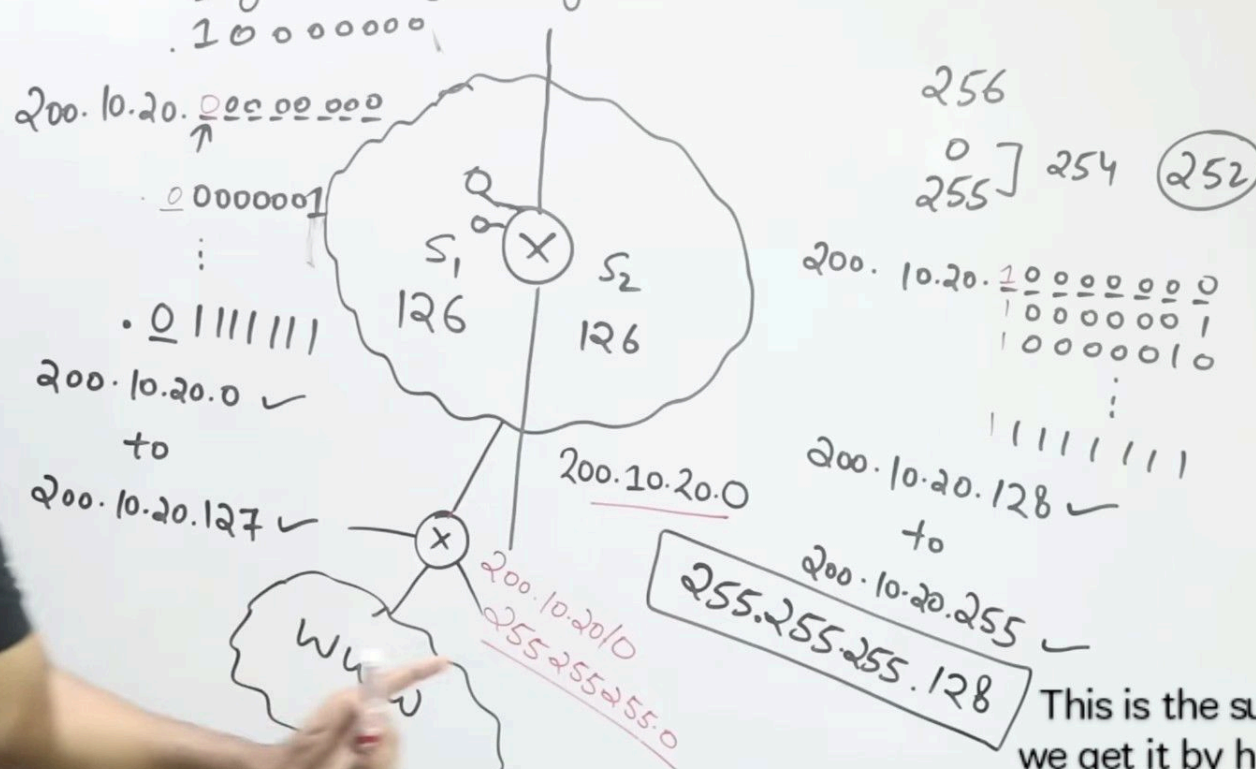 .10000000
200.10.20.00000000
00000001
.01111111
200.10.20.0 ✓
to
200.10.20.127 ✓
S1
126
S2
126
X
X
200.10.20.0
200.10.20/0
255255255.0
www
256
0
255] 254
252
200.10.20.10000000
10000001
10000010
11111111
200.10.20.128 ✓
to
200.10.20.255 ✓
255.255.255.128
This is the
we get it by